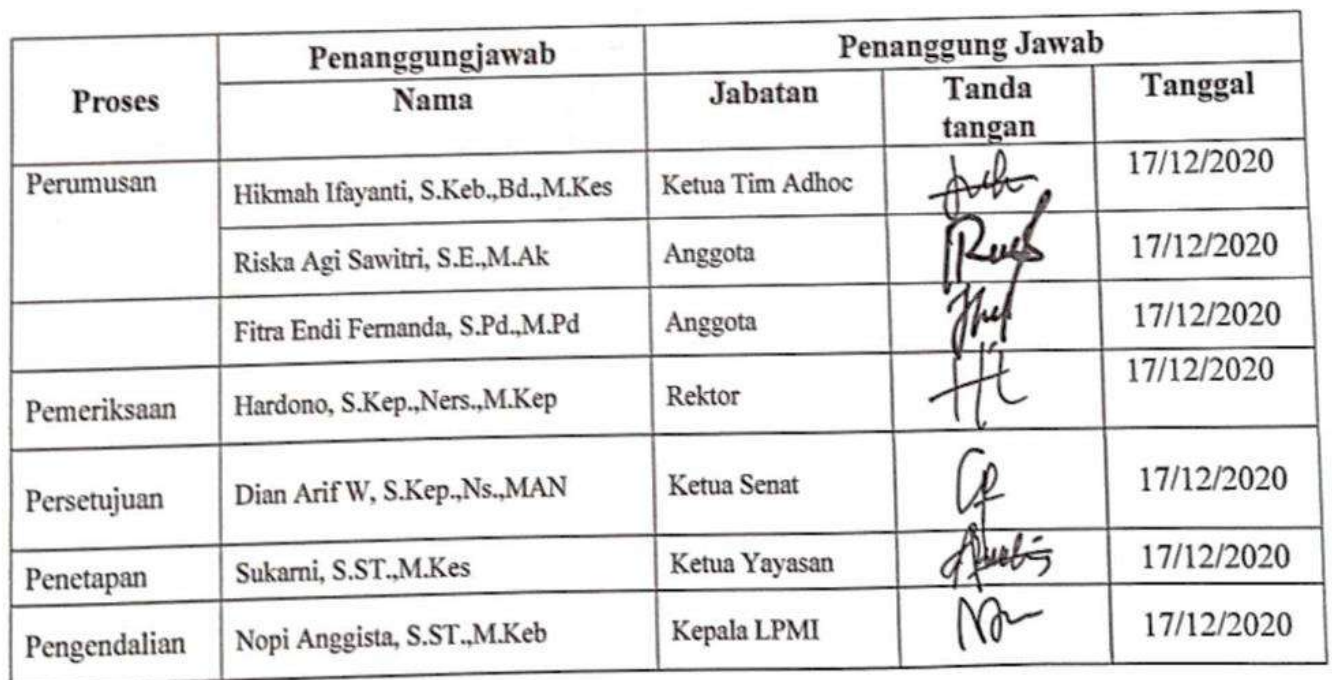 Proses Penanggungjawab Penanggung Jawab
Nama Jabatan Tanda tangan Tanggal
Perumusan Hikmah Ifayanti, S.Keb.,Bd.,M.Kes Ketua Tim Adhoc 17/12/2020
Riska Agi Sawitri, S.E.,M.Ak Anggota 17/12/2020
Fitra Endi Fernanda, S.Pd.,M.Pd Anggota 17/12/2020
Pemeriksaan Hardono, S.Kep.,Ners.,M.Kep Rektor 17/12/2020
Persetujuan Dian Arif W, S.Kep.,Ns.,MAN Ketua Senat 17/12/2020
Penetapan Sukarni, S.ST.,M.Kes Ketua Yayasan 17/12/2020
Pengendalian Nopi Anggista, S.ST.,M.Keb Kepala LPMI 17/12/2020